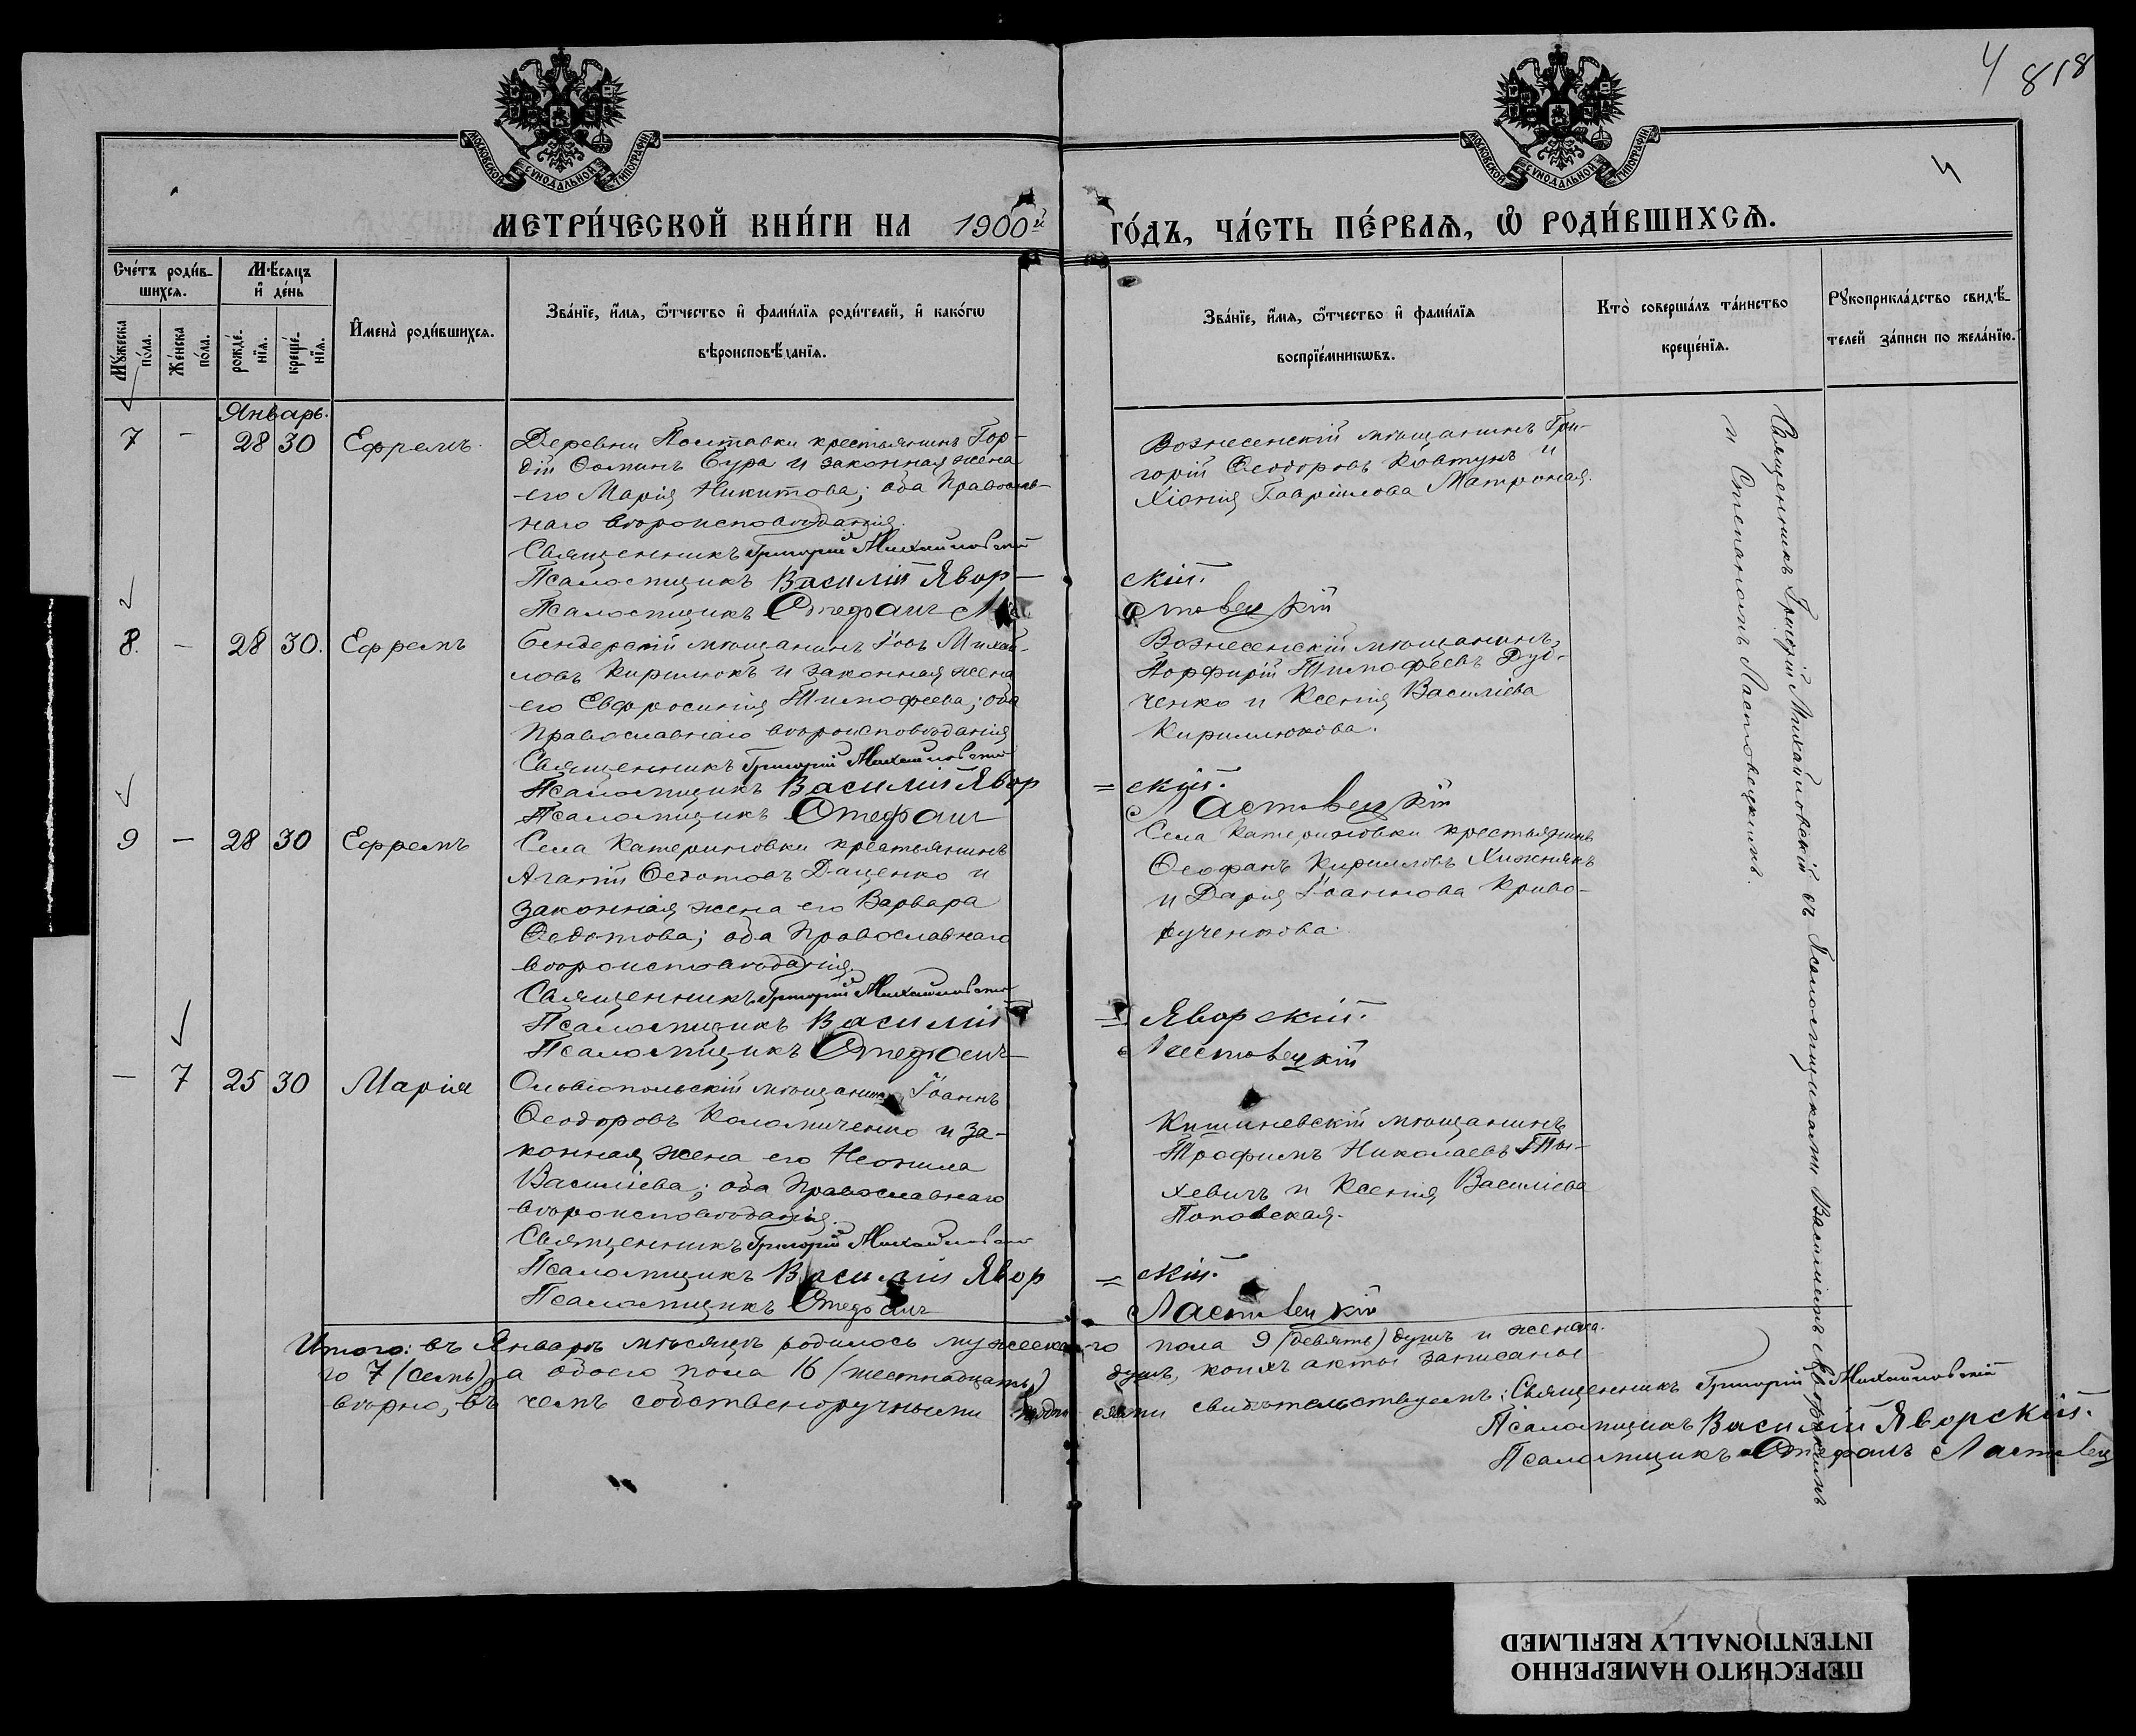 4 818
4
МОСКОВСКОЙ СУНОДАЛЬНОЙ ТИПОГРАФІИ
МОСКОВСКОЙ СУНОДАЛЬНОЙ ТИПОГРАФІИ
МЕТРИ́ЧЕСКОЙ КНИ́ГИ НА 1900й ГО́ДЪ, ЧА́СТЬ ПЕ́РВАѦ, Ѡ РОДИ́ВШИХСѦ.
Сче́тъ роди́в-
шихсѧ.
Мꙋ́жеска
по́ла.
Же́нска
по́ла.
Мѣ́сѧцъ
и҆ де́нь
рожде́-
нїѧ.
креще́-
нїѧ.
И҆мена̀ роди́вшихсѧ.
Зва́нїе, и҆́мѧ, ѻ҆́тчество и҆ фами́лїѧ роди́телей, и҆ како́гѡ
вѣроисповѣ́данїѧ.
Зва́нїе, и҆́мѧ, ѻ҆́тчество и҆ фами́лїѧ
воспрїе́мникѡвъ.
Кто̀ соверша́лъ та́инство
креще́нїѧ.
Рꙋкоприкла́дство свидѣ́-
телей за́писи по жела́нїю.
Январь.
7 - 28 30 Ефремъ.
Деревни Полтавки крестьянинъ Гор-
дій Ѳоминъ Сура и законная жена
его Марія Никитова; оба Православ-
наго вѣроисповѣданія.
Священникъ Григорій Михайловскій
Псаломщикъ Василій Явор-
скій.
Псаломщикъ Стефанъ Ластовецкій
Вознесенскій мѣщанинъ Гри-
горій Ѳеодоровъ Ковтунъ и
Хіонія Гавріилова
8. - 28 30. Ефремъ
Бендерскій мѣщанинъ Іовъ Михай-
ловъ Кирилюкъ и законная жена
его Евфросинія Тимофеева; оба
Православнаго вѣроисповѣданія
Священникъ Григорій Михайловскій
Псаломщикъ Василій Явор
=скій.
Псаломщикъ Стефанъ
Ластовецкій
Вознесенскій мѣщанинъ
Порфирій Тимофеевъ Дуд-
ченко и Ксенія Василіева
Кириллюкова.
9 - 28 30 Ефремъ
Села Катериновки крестьянинъ
Агапій Ѳедотовъ Даценко и
законная жена его Варвара
Ѳедотова; оба Православнаго
вѣроисповѣданія.
Священникъ Григорій Михайловскій
Псаломщикъ Василій
= Яворскій.
Псаломщикъ Стефанъ
Ластовецкій
Села Катериновки крестьянинъ
Ѳеофанъ Кирилловъ Хижнякъ
и Дарія Іоаннова Криво-
рученкова.
- 7 25 30 Марія
Ольвіопольскій мѣщанинъ Іоаннъ
Ѳеодоровъ Коломиченко и за-
конная жена его Неонила
Василіева; оба Православнаго
вѣроисповѣданія.
Священникъ Григорій Михайловскій
Псаломщикъ Василій Явор
=скій.
Псаломщикъ Стефанъ
Ластовецкій
Кишиневскій мѣщанинъ
Трофимъ Николаевъ
хевичъ и Ксенія Василіева
Поповская.
Священникъ Григорій Михайловскій съ Псаломщиками Василіемъ Яворскимъ
и Стефаномъ Ластовецкимъ.
Итого: въ Январѣ мѣсяцѣ родилось мужеска-го пола 9 (девять) душъ и женска-
го 7 (семь), а обоего пола 16 (шестнадцать) душъ, коихъ акты записаны
вѣрно, въ чемъ собственоручными подписями свидѣтельствуемъ: Священникъ Григорій Михайловскій
Псаломщикъ Василій Яворскій.
Псаломщикъ Стефанъ Ластовец
ПЕРЕСНЯТО НАМЕРЕННО
INTENTIONALLY REFILMED